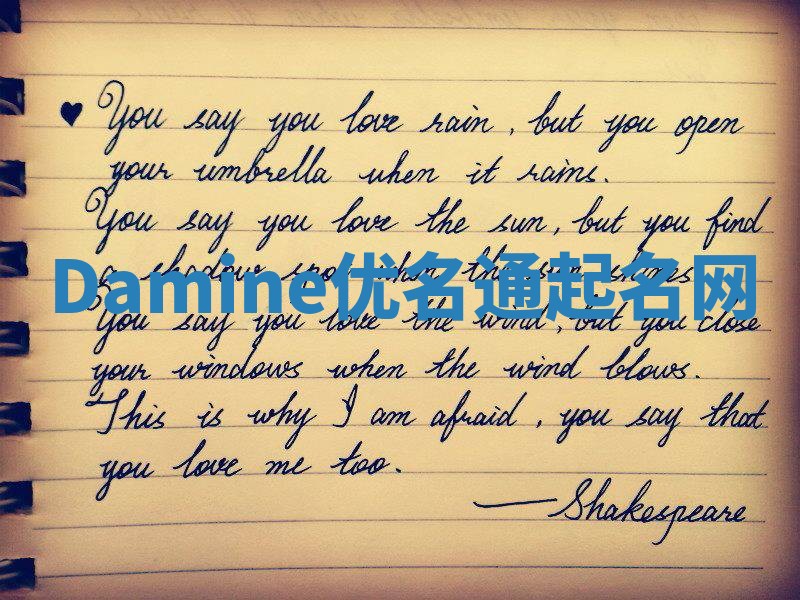 ♥ You say you love rain, but you open
your umbrella when it rains.
You say you love the sun, but you find
a shadow spot when the sun shines
Damine优名通起名网
You say you love the wind, but you close
your windows when the wind blows.
This is why I am afraid, you say that
you love me too.
— Shakespeare